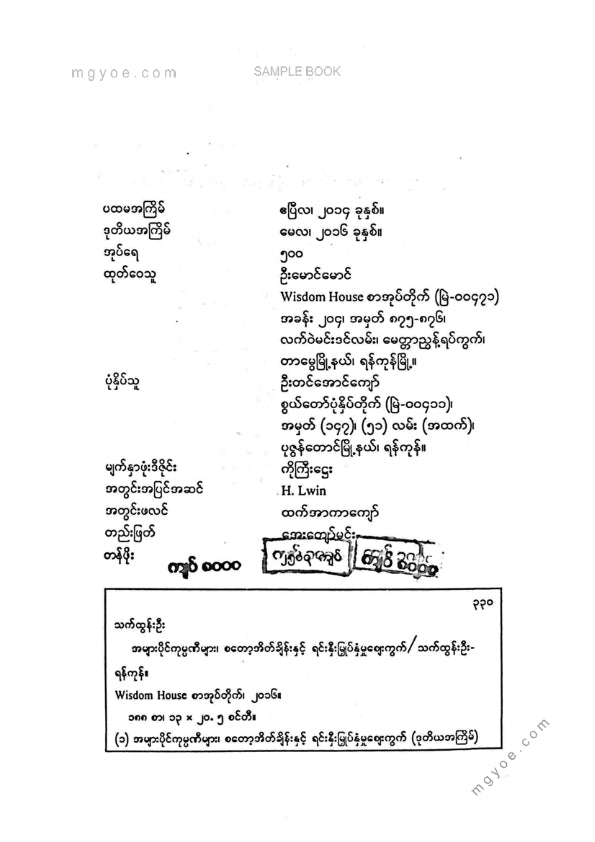 mgyoe.com SAMPLE BOOK
ပထမအကြိမ် ဧပြီလ၊ ၂၀၁၄ ခုနှစ်။
ဒုတိယအကြိမ် မေလ၊ ၂၀၁၆ ခုနှစ်။
အုပ်ရေ ၅၀၀
ထုတ်ဝေသူ ဦးမောင်မောင်
Wisdom House စာအုပ်တိုက် (မြဲ-၀၀၄၇၁)
အခန်း ၂၀၄၊ အမှတ် ၈၇၅-၈၇၆၊
လက်ဝဲမင်းဒင်လမ်း၊ မေတ္တာညွန့်ရပ်ကွက်၊
တာမွေမြို့နယ်၊ ရန်ကုန်မြို့။
ပုံနှိပ်သူ ဦးတင်အောင်ကျော်
စွယ်တော်ပုံနှိပ်တိုက် (မြဲ-၀၀၄၁၁)၊
အမှတ် (၁၄၇)၊ (၅၁) လမ်း (အထက်)၊
ပုဇွန်တောင်မြို့နယ်၊ ရန်ကုန်။
မျက်နှာဖုံးဒီဇိုင်း ကိုကြီးဌေး
အတွင်းအပြင်အဆင် H. Lwin
အတွင်းဖလင် ထက်အာကာကျော်
တည်းဖြတ် အေးကျော်မင်း
တန်ဖိုး ကျပ် ၈၀၀၀
၃၃၀
သက်ထွန်းဦး
အများပိုင်ကုမ္ပဏီများ၊ စတော့အိတ်ချိန်းနှင့် ရင်းနှီးမြှုပ်နှံမှုဈေးကွက်/သက်ထွန်းဦး-
ရန်ကုန်။
Wisdom House စာအုပ်တိုက်၊ ၂၀၁၆။
၁၈၈ စာ၊ ၁၃ × ၂၀.၅ စင်တီ။
(၁) အများပိုင်ကုမ္ပဏီများ၊ စတော့အိတ်ချိန်းနှင့် ရင်းနှီးမြှုပ်နှံမှုဈေးကွက် (ဒုတိယအကြိမ်)
mgyoe.com